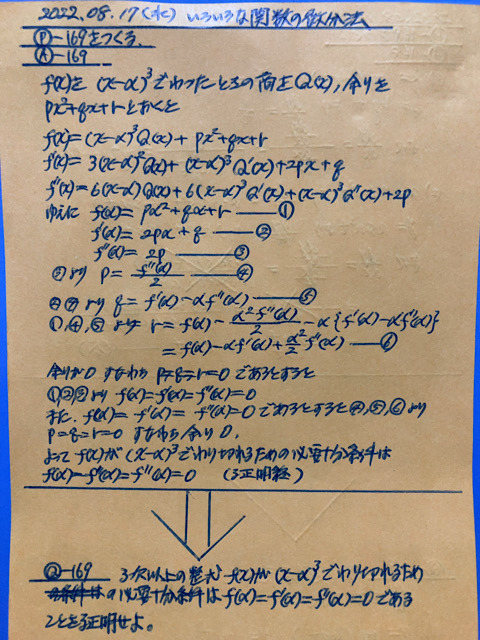 2022.08.17(水) いろいろな関数の微分法
Ⓟ-169をつくる.
Ⓐ-169
f(x)を (x-α)³でわったときの商をQ(x), 余りを
px²+qx+rとおくと
f(x)=(x-α)³Q(x)+px²+qx+r
f'(x)=3(x-α)²Q(x)+(x-α)³Q'(x)+2px+q
f''(x)=6(x-α)Q(x)+6(x-α)²Q'(x)+(x-α)³Q''(x)+2p
ゆえに f(α)=pα²+qα+r ―①
f'(α)=2pα+q ―②
f''(α)=2p ―③
③より p=f''(α)/2 ―④
②④より q=f'(α)-αf''(α) ―⑤
①,④,⑤より r=f(α)-α²f''(α)/2-α{f'(α)-αf''(α)}
=f(α)-αf'(α)+α²/2f''(α) ―⑥
余りが0 すなわち p=q=r=0 であるとすると
①②③より f(α)=f'(α)=f''(α)=0
また. f(α)=f'(α)=f''(α)=0であるとすると④,⑤,⑥より
p=q=r=0 すなわち余り0.
よって f(x)が(x-α)³でわり切れるための必要十分条件は
f(α)=f'(α)=f''(α)=0 (証明終)
Ⓠ-169 3次以上の整式 f(x)が(x-α)³でわり切れるため
の必要十分条件はf(α)=f'(α)=f''(α)=0である
ことを証明せよ。